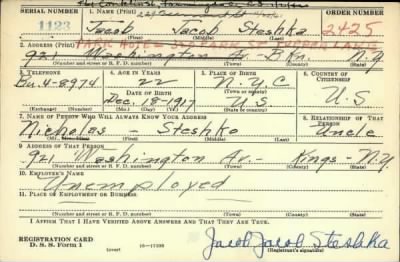 SERIAL NUMBER
1. NAME (Print)
ORDER NUMBER
1123
Jacob Jacob Steshka
2425
(First) (Middle) (Last)
2. ADDRESS (Print)
921 Washington Av. Bkn. N.Y.
(Number and street or R. F. D. number) (Town) (County) (State)
3. TELEPHONE
4. AGE IN YEARS
5. PLACE OF BIRTH
6. COUNTRY OF CITIZENSHIP
Bu. 4-8974
22
N.Y.C
DATE OF BIRTH
(Town or county)
U.S
Dec. 18-1917
U S
(Exchange) (Number)
(Mo.) (Day) (Yr.)
(State or country)
7. NAME OF PERSON WHO WILL ALWAYS KNOW YOUR ADDRESS
8. RELATIONSHIP OF THAT PERSON
Nicholas - Steshko
Uncle
(Mr., Mrs., Miss) (First) (Middle) (Last)
9. ADDRESS OF THAT PERSON
921 Washington Av. - Kings - N.Y.
(Number and street or R. F. D. number) (Town) (County) (State)
10. EMPLOYER'S NAME
Unemployed
11. PLACE OF EMPLOYMENT OR BUSINESS
(Number and street or R. F. D. number) (Town) (County) (State)
I AFFIRM THAT I HAVE VERIFIED ABOVE ANSWERS AND THAT THEY ARE TRUE.
REGISTRATION CARD
D. S. S. Form 1
(over)
Jacob Jacob Steshka
(Registrant's signature)